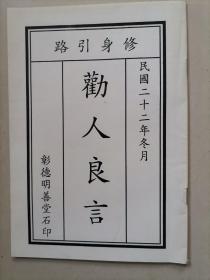 路引身修
民國二十二年冬月
勸人良言
彰德明善堂石印